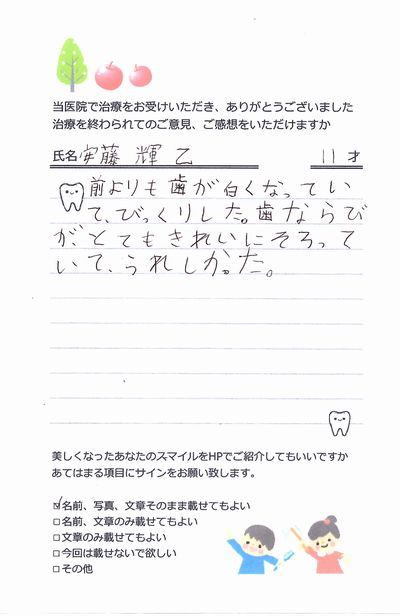 当医院で治療をお受けいただき、ありがとうございました
治療を終わられてのご意見、ご感想をいただけますか
氏名 安藤 輝 乙 11 才
前よりも歯が白くなってい
て、びっくりした。歯ならび
が、とてもきれいにそろって
いて、うれしかった。
美しくなったあなたのスマイルをHPでご紹介してもいいですか
あてはまる項目にサインをお願い致します。
☑名前、写真、文章そのまま載せてもよい
□名前、文章のみ載せてもよい
□文章のみ載せてもよい
□今回は載せないで欲しい
□その他